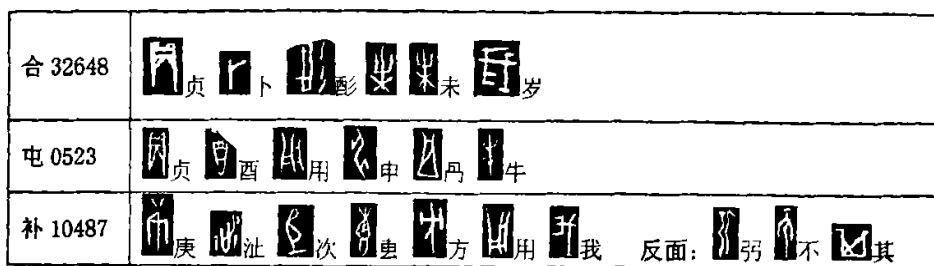 合 32648 贞 卜 酻 未 岁
屯 0523 贞 酉 用 申 丹 牛
补 10487 庚 沚 次 叀 方 用 我 反面： 弜 不 其